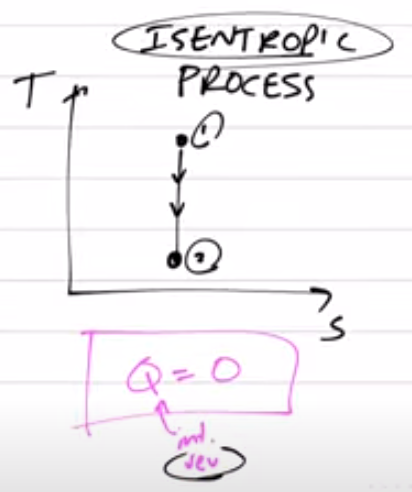 ISENTROPIC
PROCESS
T
1
2
S
Q = 0
int.
rev